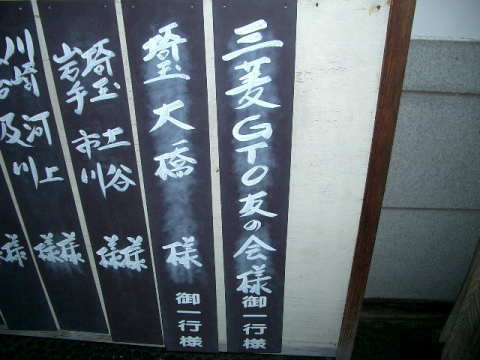 三菱GTO友の会様御一行様
埼玉 大橋 様 御一行様
埼玉 土谷 様
岩手 市川 様
川崎 河上 様
及川 様